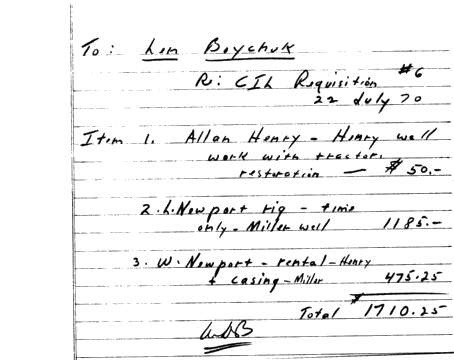 To: Len Boychuk
R: CIL Requisition #6
22 July 70
Item 1. Allan Henry - Henry well
work with tractor,
restoration — $50.-
2. L. Newport rig - time
only - Miller well 1185.-
3. W. Newport - rental - Henry
+ casing - Miller 475.25
Total 1710.25